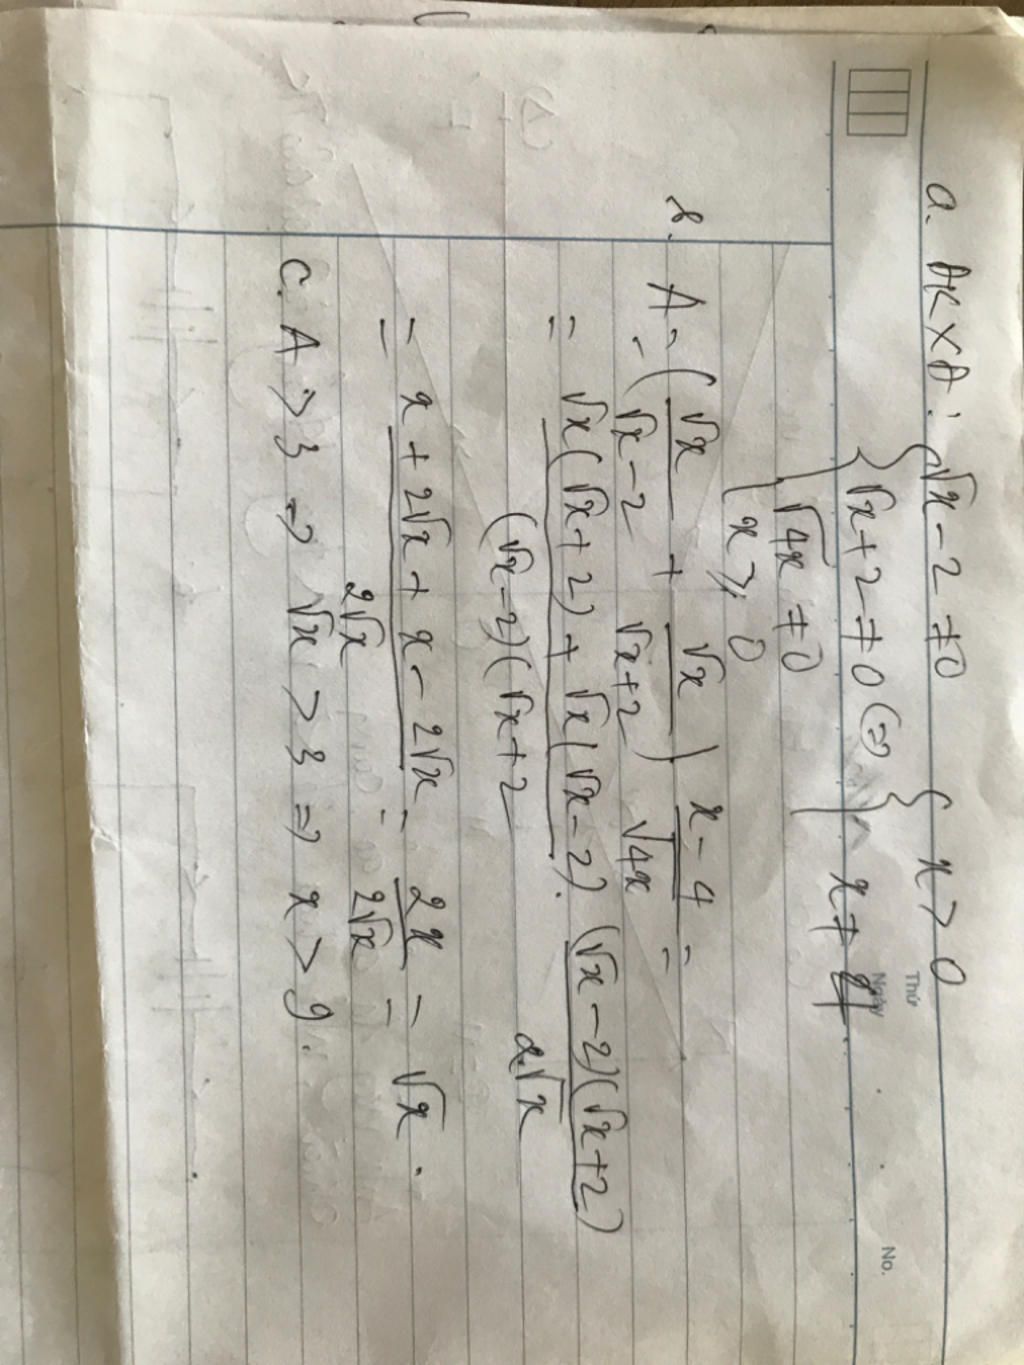 Thứ
Ngày
No.
a. ĐKXĐ: { √x - 2 ≠ 0 { x > 0
{ √x + 2 ≠ 0 (=) x ≠ 4
√4x ≠ 0
x ⩾ 0
b. A = ( √x / √x - 2 + √x / √x + 2 ) x - 4 / √4x =
= √x ( √x + 2 ) + √x ( √x - 2 ) / ( √x - 2 ) ( √x + 2 . ( √x - 2 ) ( √x + 2 ) / 2.√x
= x + 2√x + x - 2√x / 2√x = 2x / 2√x = √x .
c. A > 3 => √x > 3 => x > 9 .